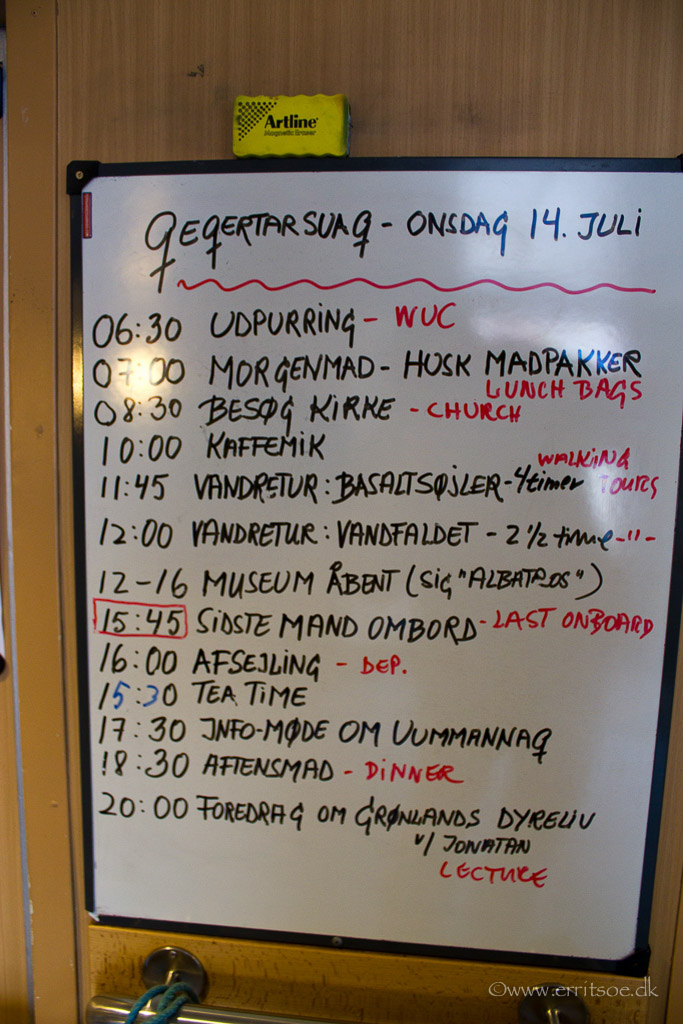 Artline
Magnetic Eraser
QEQERTARSUAQ - ONSDAG 14. JULI
06:30 UDPURRING - WUC
07:00 MORGENMAD - HUSK MADPAKKER
LUNCH BAGS
08:30 BESØG KIRKE - CHURCH
10:00 KAFFEMIK
WALKING
11:45 VANDRETUR: BASALTSØJLER - 4 timer TOURS
12:00 VANDRETUR: VANDFALDET - 2 1/2 time -"-
12-16 MUSEUM ÅBENT (SIG "ALBATROS")
15:45 SIDSTE MAND OMBORD - LAST ONBOARD
16:00 AFSEJLING - DEP.
15:30 TEA TIME
17:30 INFO-MØDE OM UUMMANNAQ
18:30 AFTENSMAD - DINNER
20:00 FOREDRAG OM GRØNLANDS DYRELIV
v/ JONATAN
LECTURE
©www.erritsoe.dk